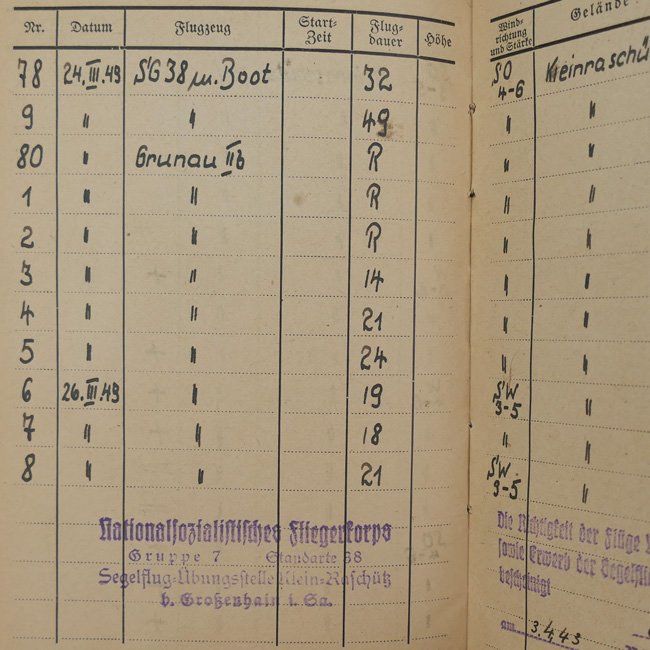 Nr. Datum Flugzeug Start-Zeit Flug-dauer Höhe Wind-richtung und Stärke Gelände
78 24.III.43 SG38 m. Boot 32 SO 4-6 Kleinraschü
9 " " 49 " "
80 " Grunau IIb R " "
1 " " R " "
2 " " R " "
3 " " 14 " "
4 " " 21 " "
5 " " 24 " "
6 26.III.43 " 19 SW 3-5 "
7 " " 18 " "
8 " " 21 SW 3-5 "
Nationalsozialistisches Fliegerkorps
Gruppe 7 Standarte 38
Segelflug-Übungsstelle Klein-Raschütz
b. Großenhain i. Sa.
Die Richtigkeit der Flüge
sowie Erwerb der Segelfl
bescheinigt
am 3.4.43